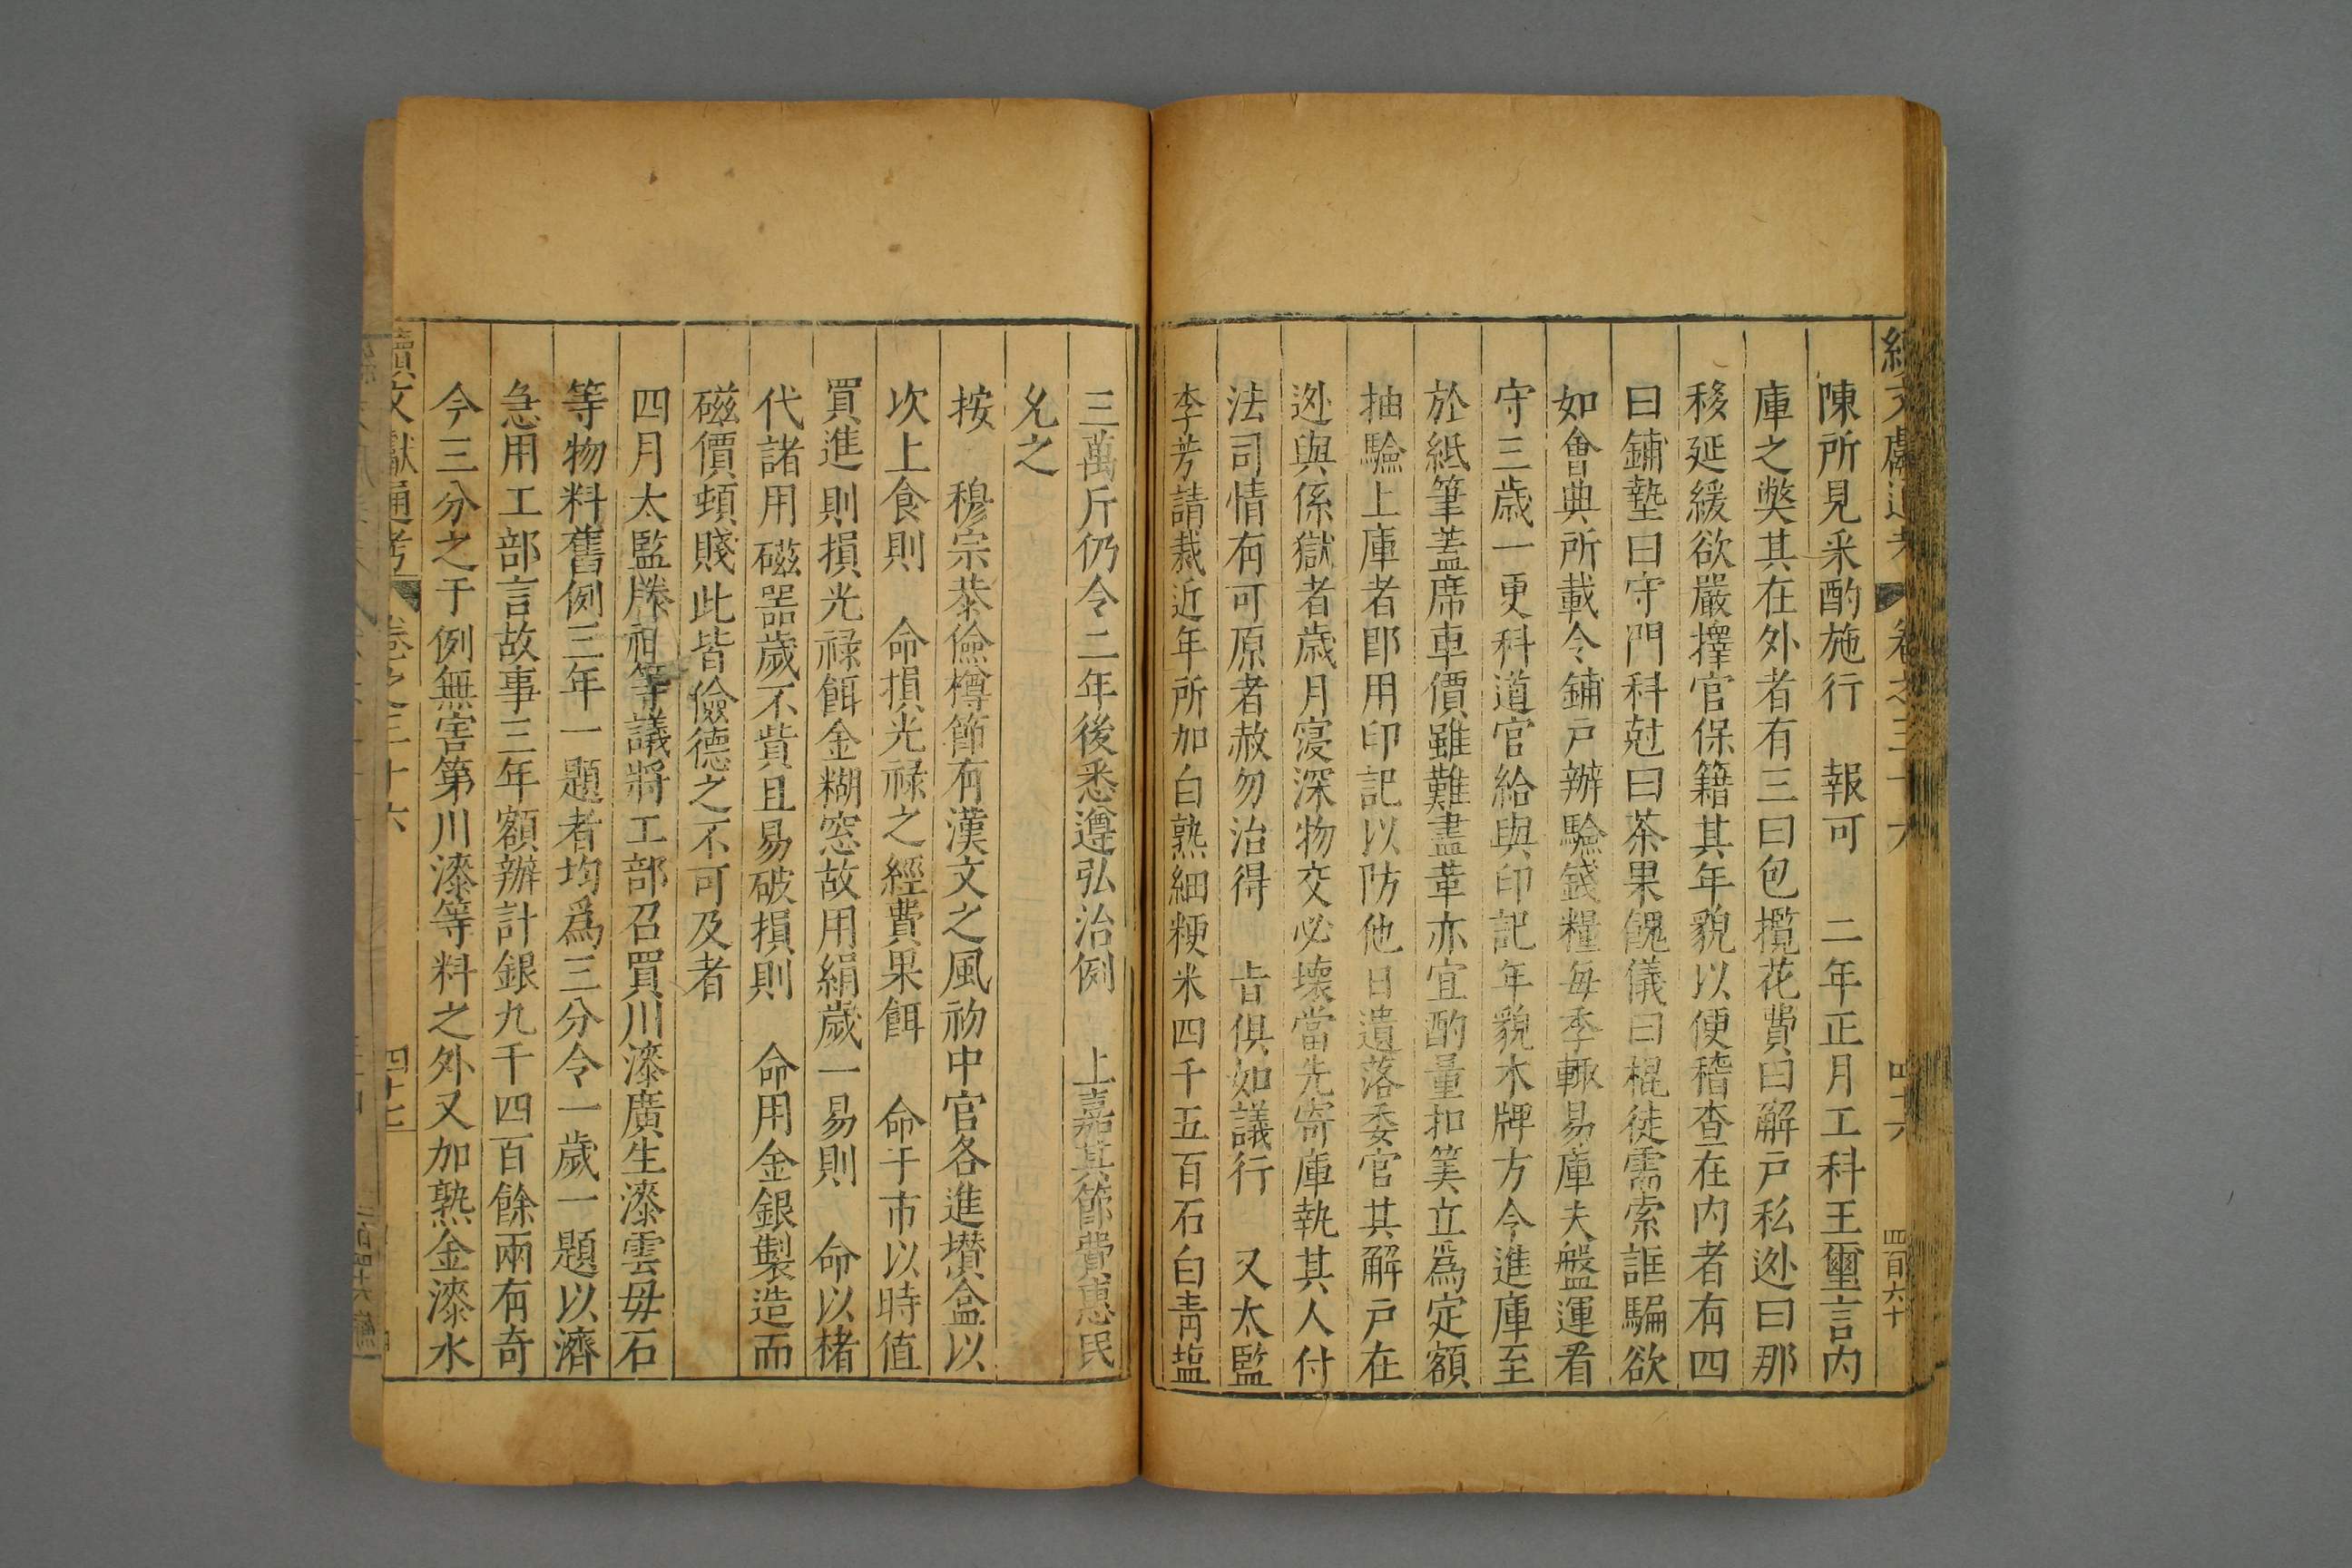 續文獻通考 卷之三十六 四十六 四百六十
陳所見采酌施行 報可 二年正月工科王璽言内
庫之獘其在外者有三曰包攬花費曰解戸私迯曰那
移延緩欲嚴擇官保籍其年貌以便稽查在内者有四
曰鋪墊曰守門科尅曰茶果餽儀曰棍徒需索誆騙欲
如會典所載令鋪戸辦驗錢糧每季輙易庫夫盤運看
守三歳一更科道官給與印記年貌木牌方令進庫至
於紙筆蓋席車價雖難盡革亦宜酌量扣筭立爲定額
抽驗上庫者即用印記以防他日遺落委官其解戸在
迯與係獄者歳月寖深物交必壞當先寄庫執其人付
法司情有可原者赦勿治得 㫖俱如議行 又太監
李芳請裁近年所加白熟細粳米四千五百石白青鹽
三萬斤仍令二年後悉遵弘治例 上嘉其節費惠民
允之
按 穆宗恭儉樽節有漢文之風初中官各進攅盒以
次上食則 命損光禄之經費果餌 命于市以時值
買進則損光禄餌金糊窓故用絹歲一易則 命以楮
代諸用磁噐歲不貲且易破損則 命用金銀製造而
磁價頓賤此皆儉德之不可及者
四月太監滕祖等議將工部召買川漆廣生漆雲母石
等物料舊例三年一題者均爲三分令一歲一題以濟
急用工部言故事三年額辦計銀九千四百餘兩有奇
今三分之于例無害第川漆等料之外又加熟金漆水
續文獻通考 卷之三十六 四十七